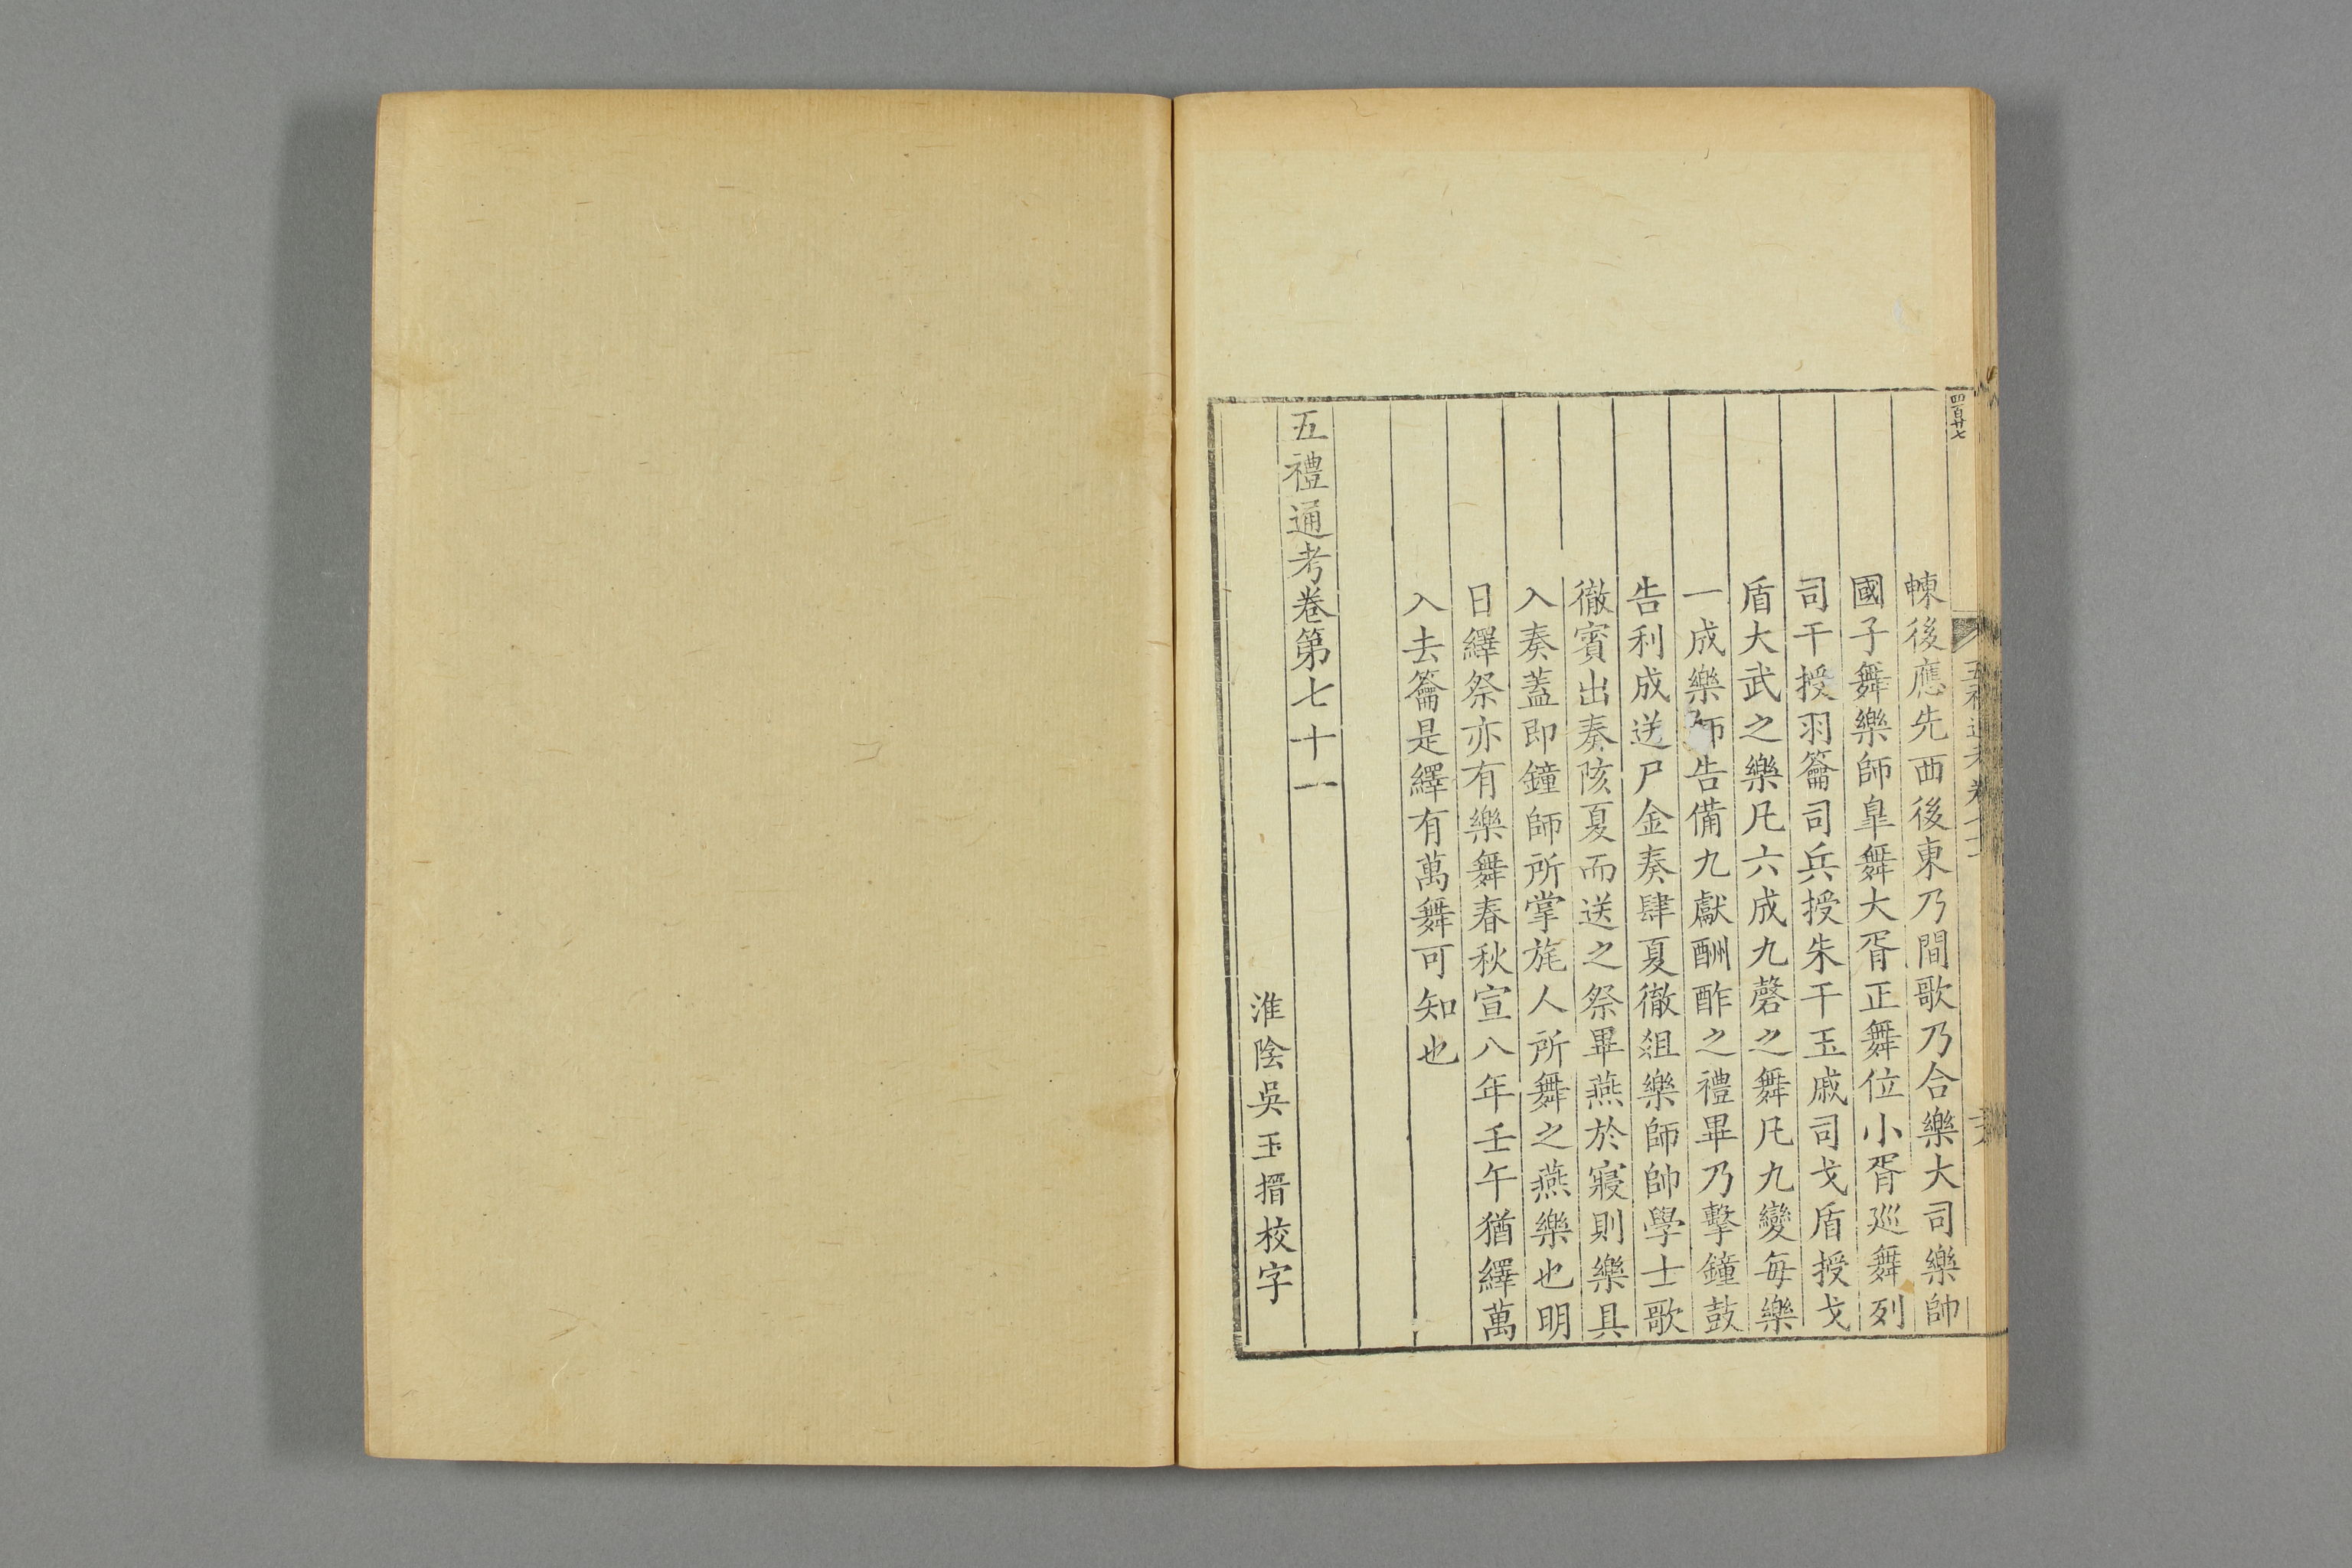 四百廿七
五禮通考卷七十一
㯥後應先西後東乃間歌乃合樂大司樂帥
國子舞樂師臯舞大胥正舞位小胥巡舞列
司干授羽籥司兵授朱干玉戚司戈盾授戈
盾大武之樂凡六成九磬之舞凡九變每樂
一成樂師告備九獻酬酢之禮畢乃擊鐘鼓
告利成送尸金奏肆夏徹俎樂師帥學士歌
徹賓出奏陔夏而送之祭畢燕於寢則樂具
入奏蓋即鐘師所掌旄人所舞之燕樂也明
日繹祭亦有樂舞春秋宣八年壬午猶繹萬
入去籥是繹有萬舞可知也
五禮通考卷第七十一
淮陰吳玉搢校字